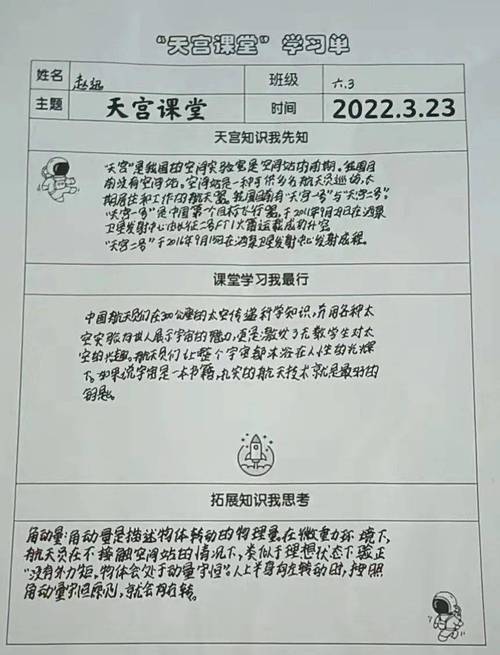 “天宫课堂”学习单
姓名 赵 班级 六.3
主题 天宫课堂 时间 2022.3.23
天宫知识我先知
“天宫”是我国的空间实验室是空间站的前期。我国目
前没有空间站。空间站是一种可供多名航天员巡访,太
期居住和工作的航天器。我国目前有“天宫一号”与“天宫二号”。
“天宫一号”是中国第一个目标飞行器。于2011年9月29日在酒泉
卫星发射中心由长征二号FT1火箭运载成功升空
“天宫二号”于2016年9月15日在酒泉卫星发射中心发射成程。
课堂学习我最行
中国航天员们在300公里的太空传递科学知识,并用各种太
空实验为世人展示宇宙的魅力,更是激发了无数学生对太
空的兴趣。航天员们让整个宇宙都沐浴在人性的光辉
下。如果说宇宙是一本书籍,扎实的航天技术就是最好的
钥匙。
拓展知识我思考
角动量:角动量是描述物体转动的物理量。在微重力环境下,
航天员在不接触空间站的情况下,类似于理想状态下验证
“没有外力矩,物体会处于动量守恒”。人上半身向左转动时,按照
角动量守恒原则,就会向右转。